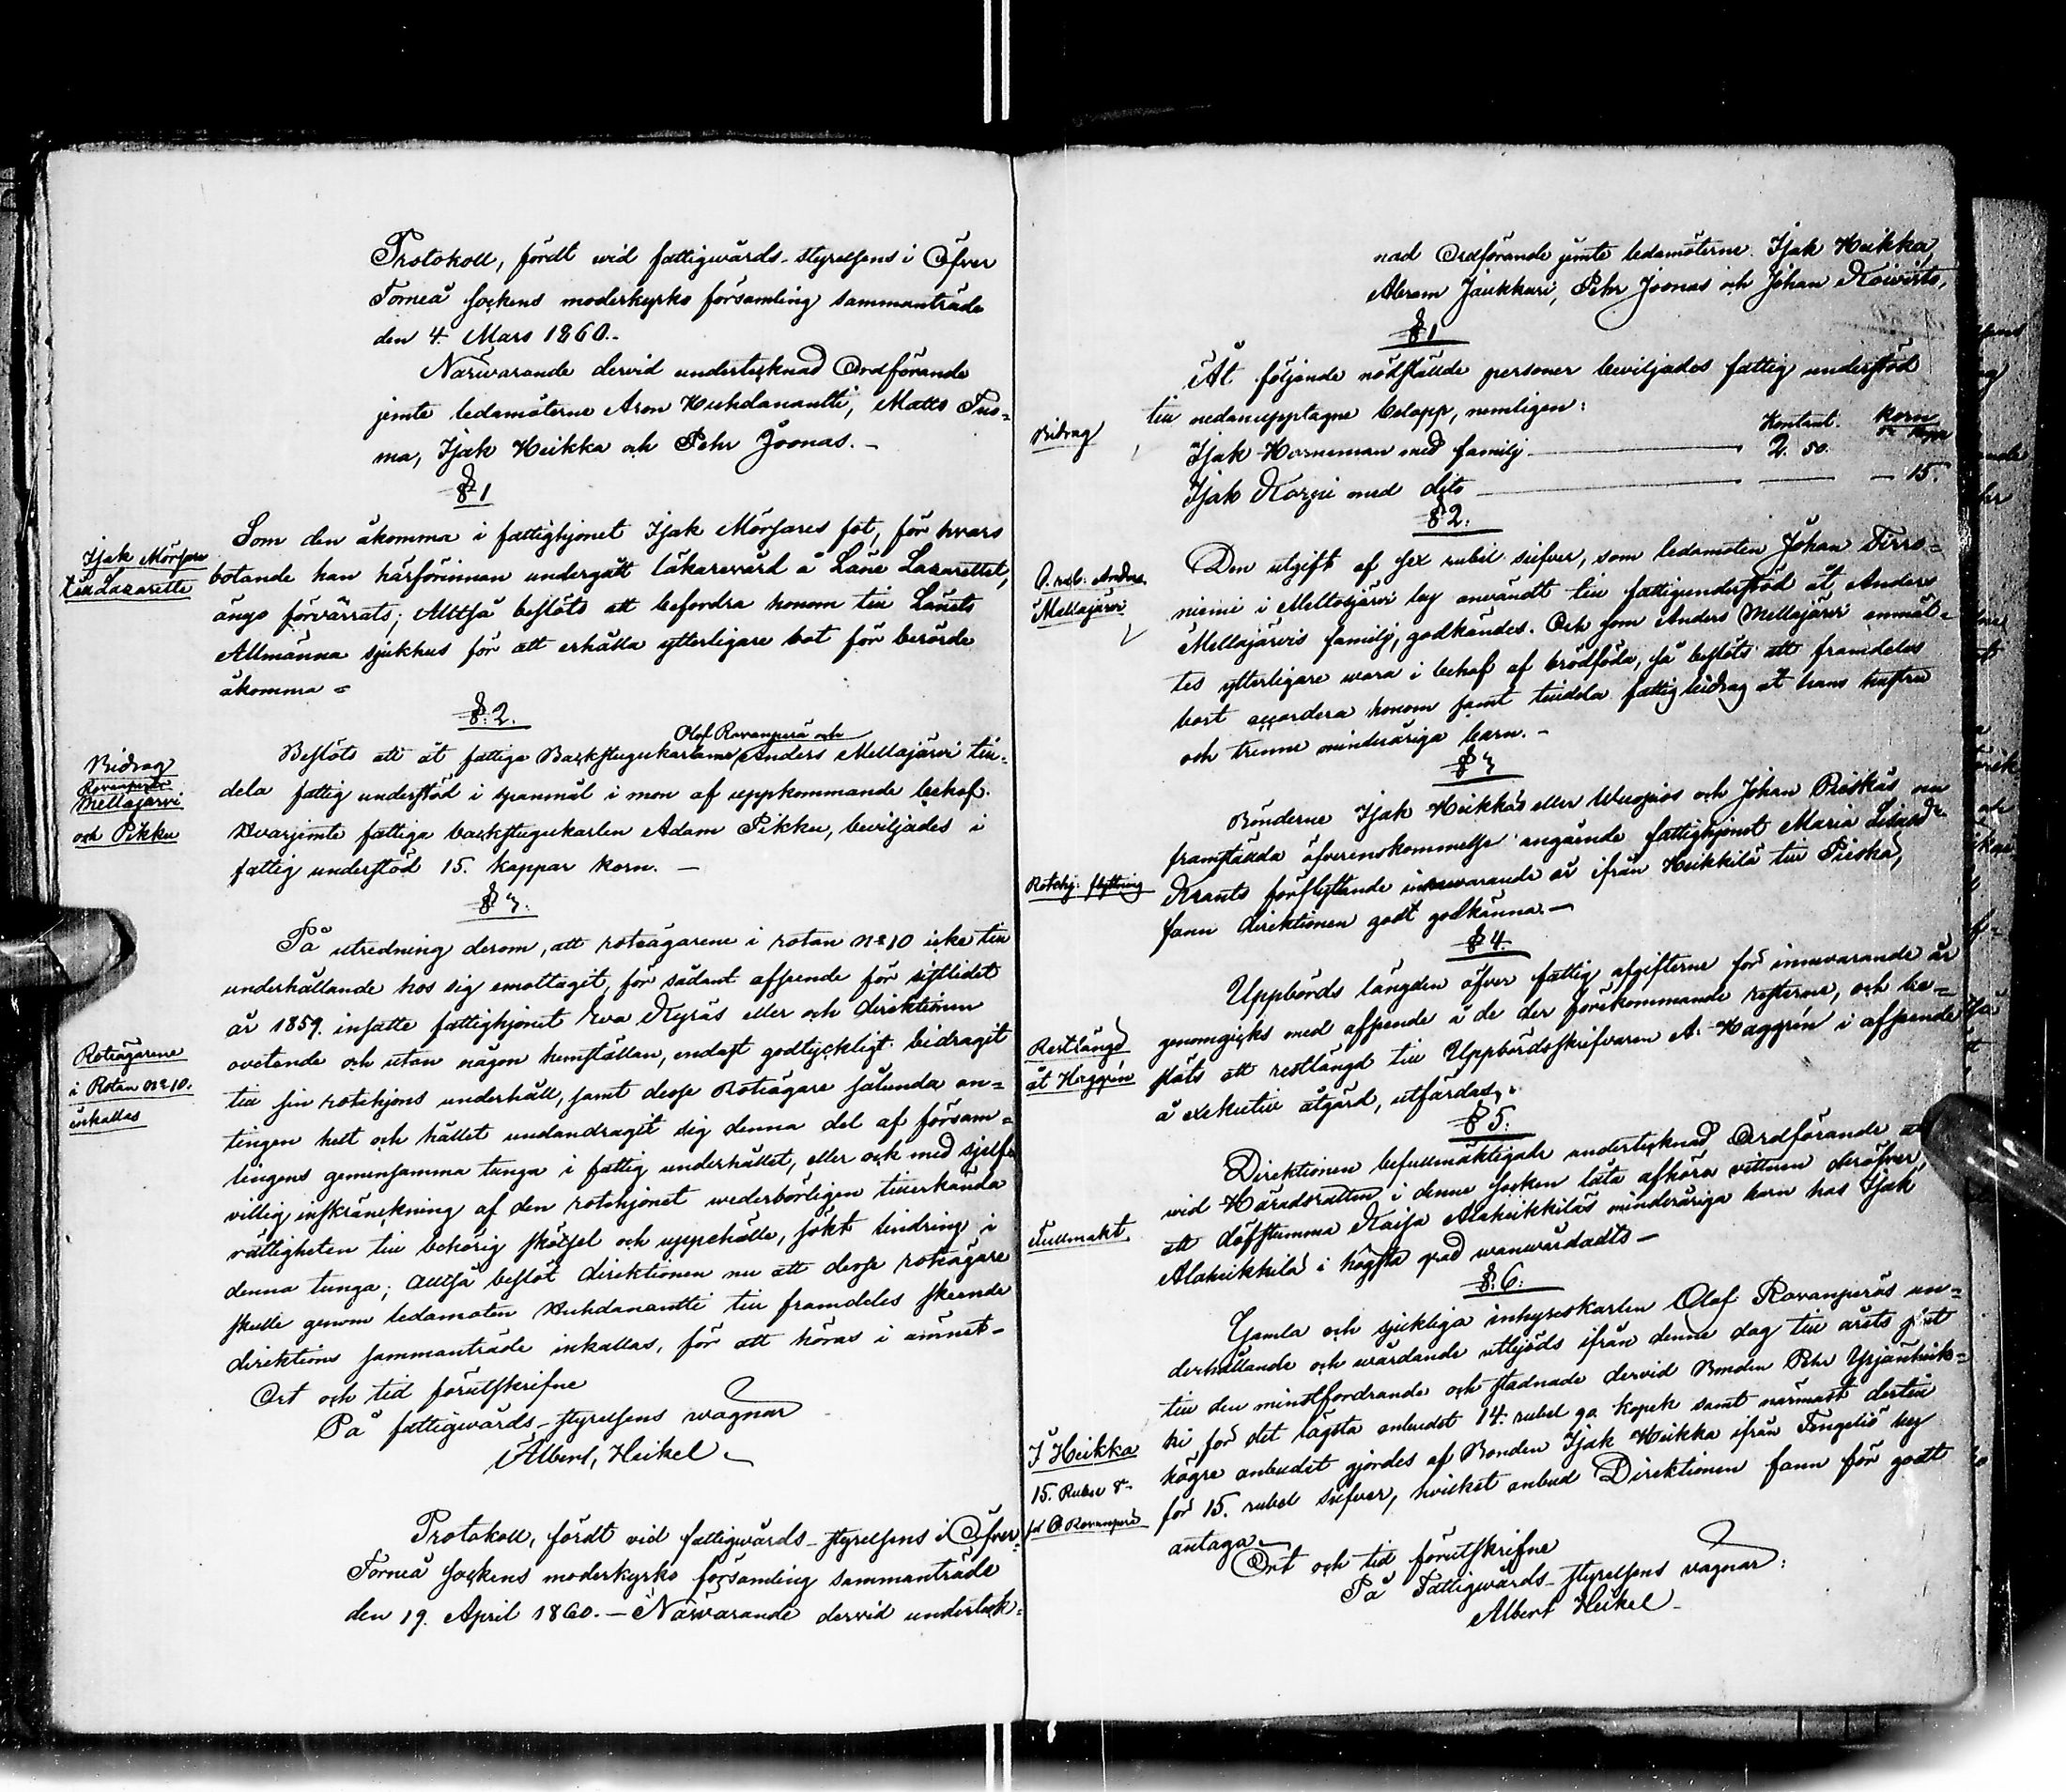 Protokoll, fördt vid fattigvårds-styrelsens i Öfver
Torneå sockens moderkyrko församling sammanträde
den 4. Mars 1860.-
Närvarande dervid undertecknad Ordförande
jemte ledamöterne Aron Huhdanantti, Matts Tuo-
ma, Isak Heikka och Pehr Joonas.-
§ 1
Isak Mörsare
till Lazarette
Som den åkomma i fattighjonet Isak Mörsares fot, för hvars
botande han härförinnan undergått läkarevård å Läne Lazarettet,
ånyo förvärrats; Alltså beslöts att befordra honom till Länets
Allmänna sjukhus för att erhålla ytterligare bot för berörde
åkomma =
§ 2.
Bidrag
Rovanperä
Mellajärvi
och Pikku
Olof Rovanperä och
Beslöts att åt fattige Backstugukarlarne Anders Mellajärvi till-
dela fattig understöd i spanmål i mon af uppkommande behof.
Hvarjemte fattiga backstugukarlen Adam Pikku, beviljades i
fattig understöd 15. kappar korn. -
§ 3.
Roteägarene
i Rotan N:o 10.
inkallas
På utredning derom, att roteägarene i rotan N:o 10 icke till
underhållande hos sig emottagit, för sådant afseende för sistlidet
år 1859. insatte fattighjonet Eva Kyräs eller och direktionen
ovetande och utan någon hemställan, endast godtyckligt bidragit
till sin rotehjons underhåll, samt desse Roteägare sålunda an-
tingen helt och hållet undandragit sig denna del af försam-
lingens gemensamma tunga i fattig underhållet, eller ock med sjelf-
villig inskränckning af den rotehjonet wederbörligen tillerkända
rättigheten till behörig skötsel och uppehälle, sökt lindring i
denna tunga; alltså beslöt direktionen nu att desse roteägare
skulle genom ledamoten Huhdanantti till framdeles skeende
direktions sammanträde inkallas, för att höras i ämnet-
Ort och tid förutskrifne
På fattigwårds-styrelsens wägnar
Albert, Heikel
Protokoll, fördt vid fattigwårds-styrelsens i Öfver-
Torneå sockens moderkyrko församling sammanträde
den 19. April 1860.-Närvarande dervid underteck-
nad Ordförande jemte ledamöterne Isak Heikka,
Abram Jaukkuri, Pehr Joonas och Johan Koivisto,
§ 1
Åt följande nödställde personer beviljades fattig understöd
Bidrag
till nedanupptagne belopp, nemligen:
Kontant. Korn
Isak Horneman med familj 2. 50.
Isak Korpi med dito - 15.
§ 2.
Mellajärvi
Den utgift af sex rubel silfver, som ledamoten Johan Tirro-
niemi i Meltosjärvi by användt till fattigunderstöd åt Anders
Mellajärvis familj, godkändes. Och som Anders Mellajärvi anmäl-
tes ytterligare wara i behof af brödföda, så beslöts att framdeles
bort accordera honom samt tilldela fattigbidrag åt hans hustru
och trenne minderåriga barn.-
§ 3
Rotehj: flyttning
Bönderne Isak Heikkas eller Wuopios och Johan Pieskäs nu
framställda öfverenskommelse angående fattighjonet Maria
Krants förflyttande innewarande år ifrån Heikkilä till Pieskä,
fann direktionen godt godkänna.-
§ 4.
Restlängd
åt Häggrén
Uppbörds längden öfver fattig afgifterne för innevarande år
genomgicks med afseende å de der förekommande resterne, och be-
slöts att restlängd till Uppbördsskrifvaren A. Häggrén i afseende
å exekutiv åtgärd, utfärdas.
§ 5.
Fullmakt.
Direktionen befullmäktigade undertecknad Ordförande att
vid Häradsrätten i denne socken låta afhöra vittnen deröfver,
att döfstumma Kaisa Alaheikkiläs minderåriga barn hos Isak
Alaheikkilä i högsta grad wanwårdadts-
§ 6.
Gamla och sjukliga inhyseskarlen Olof Rovanperäs un-
derhållande och wårdande utbjöds ifrån denne dag till årets slut
till den minstfordrande och stadnade dervid Bonden Pehr Yrjänheik-
ki, för det lägsta anbudet 14. rubel 90 kopek samt närmast dertill
I Heikka
15. Rubel S-
för O. Rovanperä
högre anbudet gjordes af Bonden Isak Heikka ifrån Tengeliö by
för 15. rubel silfver, hvilket anbud Direktionen fann för godt
antaga
Ort och tid förutskrifne
På Fattigwårds-styrelsens vägnar:
Albert Heikel